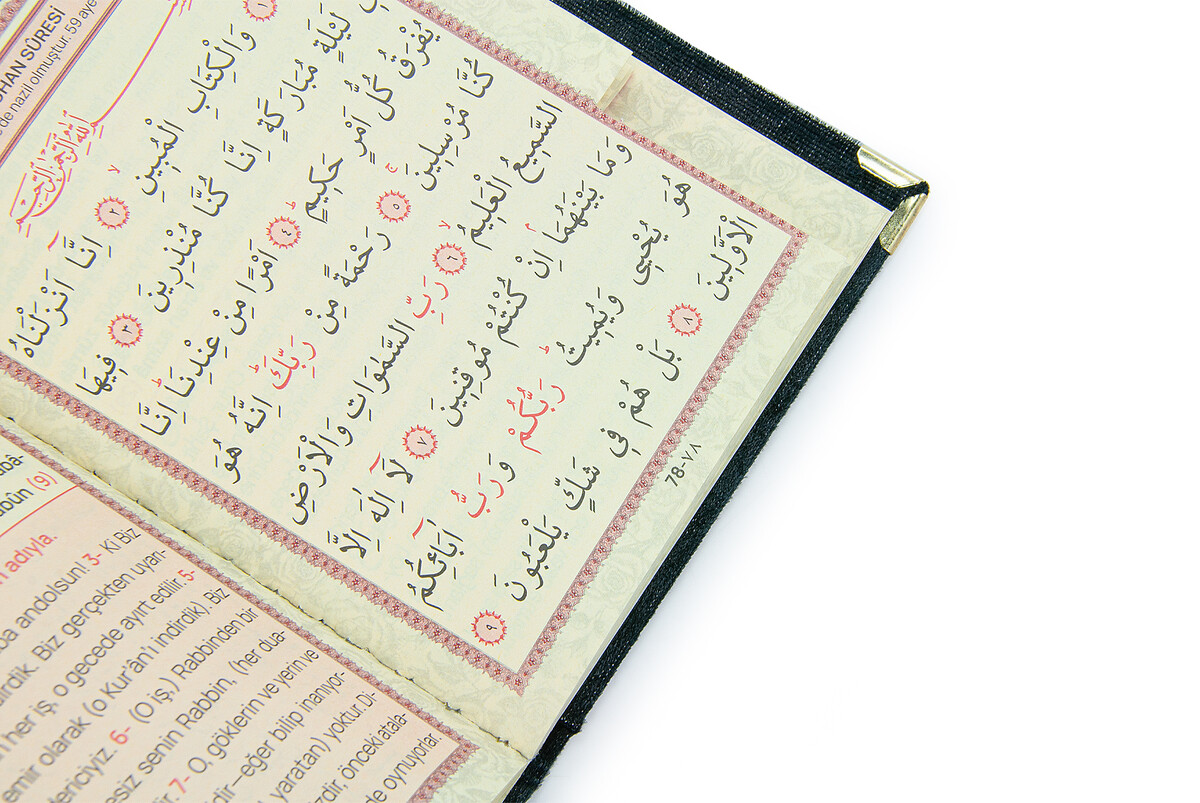 HAN SÛRESİ
de nazil olmuştur. 59 aye
بِسْمِ اللهِ الرَّحْمٰنِ الرَّحِيمِ
١ وَالْكِتَابِ الْمُبِينِۙ ٢ اِنَّٓا اَنْزَلْنَاهُ
لَيْلَةٍ مُبَارَكَةٍ اِنَّا كُنَّا مُنْذِرِينَ ٣ فِيهَا
يُفْرَقُ كُلُّ اَمْرٍ حَكِيمٍۜ ٤ اَمْرًا مِنْ عِنْدِنَاۜ اِنَّا
كُنَّا مُرْسِلِينَۚ ٥ رَحْمَةً مِنْ رَبِّكَۜ اِنَّهُ هُوَ
السَّمِيعُ الْعَلِيمُۙ ٦ رَبِّ السَّمٰوَاتِ وَالْاَرْضِ
وَمَا بَيْنَهُمَاۢ اِنْ كُنْتُمْ مُوقِنِينَ ٧ لَٓا اِلٰهَ اِلَّا
هُوَ يُحْيِى وَيُمِيتُۜ رَبُّكُمْ وَرَبُّ اٰبَٓائِكُمُ
الْاَوَّلِينَ ٨ بَلْ هُمْ فِى شَكٍّ يَلْعَبُونَ ٩
78-٧٨
abûn (9)
adıyla.
ba andolsun! 3- Ki Biz
irdik. Biz gerçekten uyarı-
her iş, o gecede ayırt edilir. 5-
emir olarak (o Kur'ân'ı indirdik). Biz
deniciyiz. 6- (O iş,) Rabbinden bir
esiz senin Rabbin, (her dua-
7- O, göklerin ve yerin ve
dir—eğer bilip inanıyor-
yaratan) yoktur. Di-
izdir, önceki atala-
de oynuyorlar.